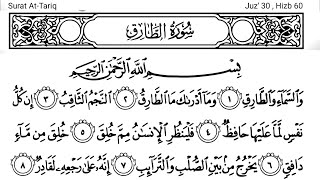 Surat At-Tariq
Juz' 30 , Hizb 60
سُورَةُ الطَّارِقِ
بِسْمِ اللَّهِ الرَّحْمَٰنِ الرَّحِيمِ
وَالسَّمَاءِ وَالطَّارِقِ ١ وَمَا أَدْرَاكَ مَا الطَّارِقُ ٢ النَّجْمُ الثَّاقِبُ ٣ إِن كُلُّ
نَفْسٍ لَّمَّا عَلَيْهَا حَافِظٌ ٤ فَلْيَنظُرِ الْإِنسَانُ مِمَّ خُلِقَ ٥ خُلِقَ مِن مَّاءٍ
دَافِقٍ ٦ يَخْرُجُ مِن بَيْنِ الصُّلْبِ وَالتَّرَائِبِ ٧ إِنَّهُ عَلَىٰ رَجْعِهِ لَقَادِرٌ ٨